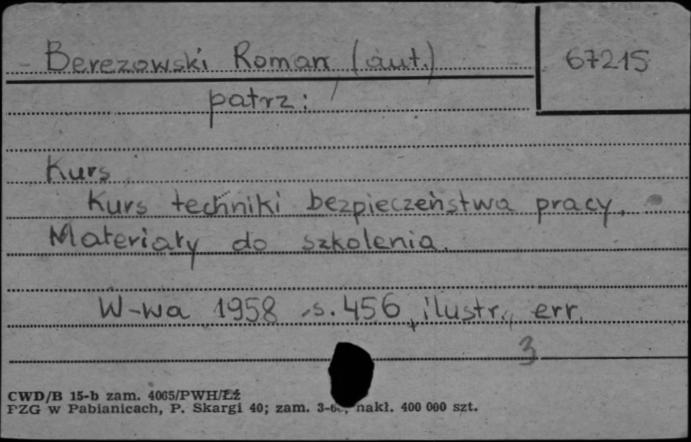 Berezowski Roman (aut.)
67215
patrz:
Kurs
Kurs techniki bezpieczeństwa pracy.
Materiały do szkolenia.
W-wa 1958 s. 456, ilustr., err.
3
CWD/B 15-b zam. 4065/PWH/Łź
PZG w Pabianicach, P. Skargi 40; zam. nakł. 400 000 szt.